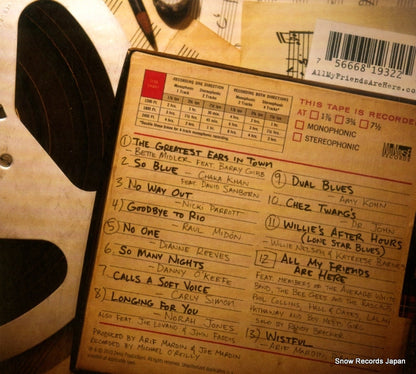 7 56668 19322
AllMyFriendsAreHere.com
RECORDING ONE DIRECTION
RECORDING BOTH DIRECTIONS
Monophonic
1 Track
Stereophonic
2 Tracks
Monophonic
2 Tracks
Stereophonic
4 Tracks
THIS TAPE IS RECORDED
AT 1⅞ 3¾ 7½
MONOPHONIC
STEREOPHONIC
RECORDS
1 THE GREATEST EARS IN TOWN
- BETTE MIDLER FEAT. BARRY GIBB
2. SO BLUE - CHAKA KHAN
FEAT DAVID SANBORN
3. NO WAY OUT
- NICKI PARROTT
4) GOODBYE TO RIO
- RAUL MIDÓN
5) NO ONE
- DIANNE REEVES
6. SO MANY NIGHTS
- DANNY O'KEEFE
7. CALLS A SOFT VOICE
- CARLY SIMON
8) LONGING FOR YOU
- NORAH JONES
ALSO FEAT. JOE LOVANO & JOHN FADDIS
PRODUCED BY ARIF MARDIN & JOE MARDIN
RECORDED BY MICHAEL O'REILLY
9 DUAL BLUES
- AMY KOHN
10. CHEZ TWANG'S
- DR. JOHN
11 WILLIE'S AFTER HOURS
(LONE STAR BLUES)
- WILLIE NELSON & KATREESE BARNES
12) ALL MY FRIENDS
ARE HERE
FEAT. MEMBERS OF THE AVERAGE WHITE
BAND, THE BEE GEES AND THE RASCALS
PHIL COLLINS, HALL & OATES, LALAH
HATHAWAY AND SO MANY MORE
SOLO BY RANDY BRECKER
13) WISTFUL
- ARIF MARDIN
Snow Records Japan